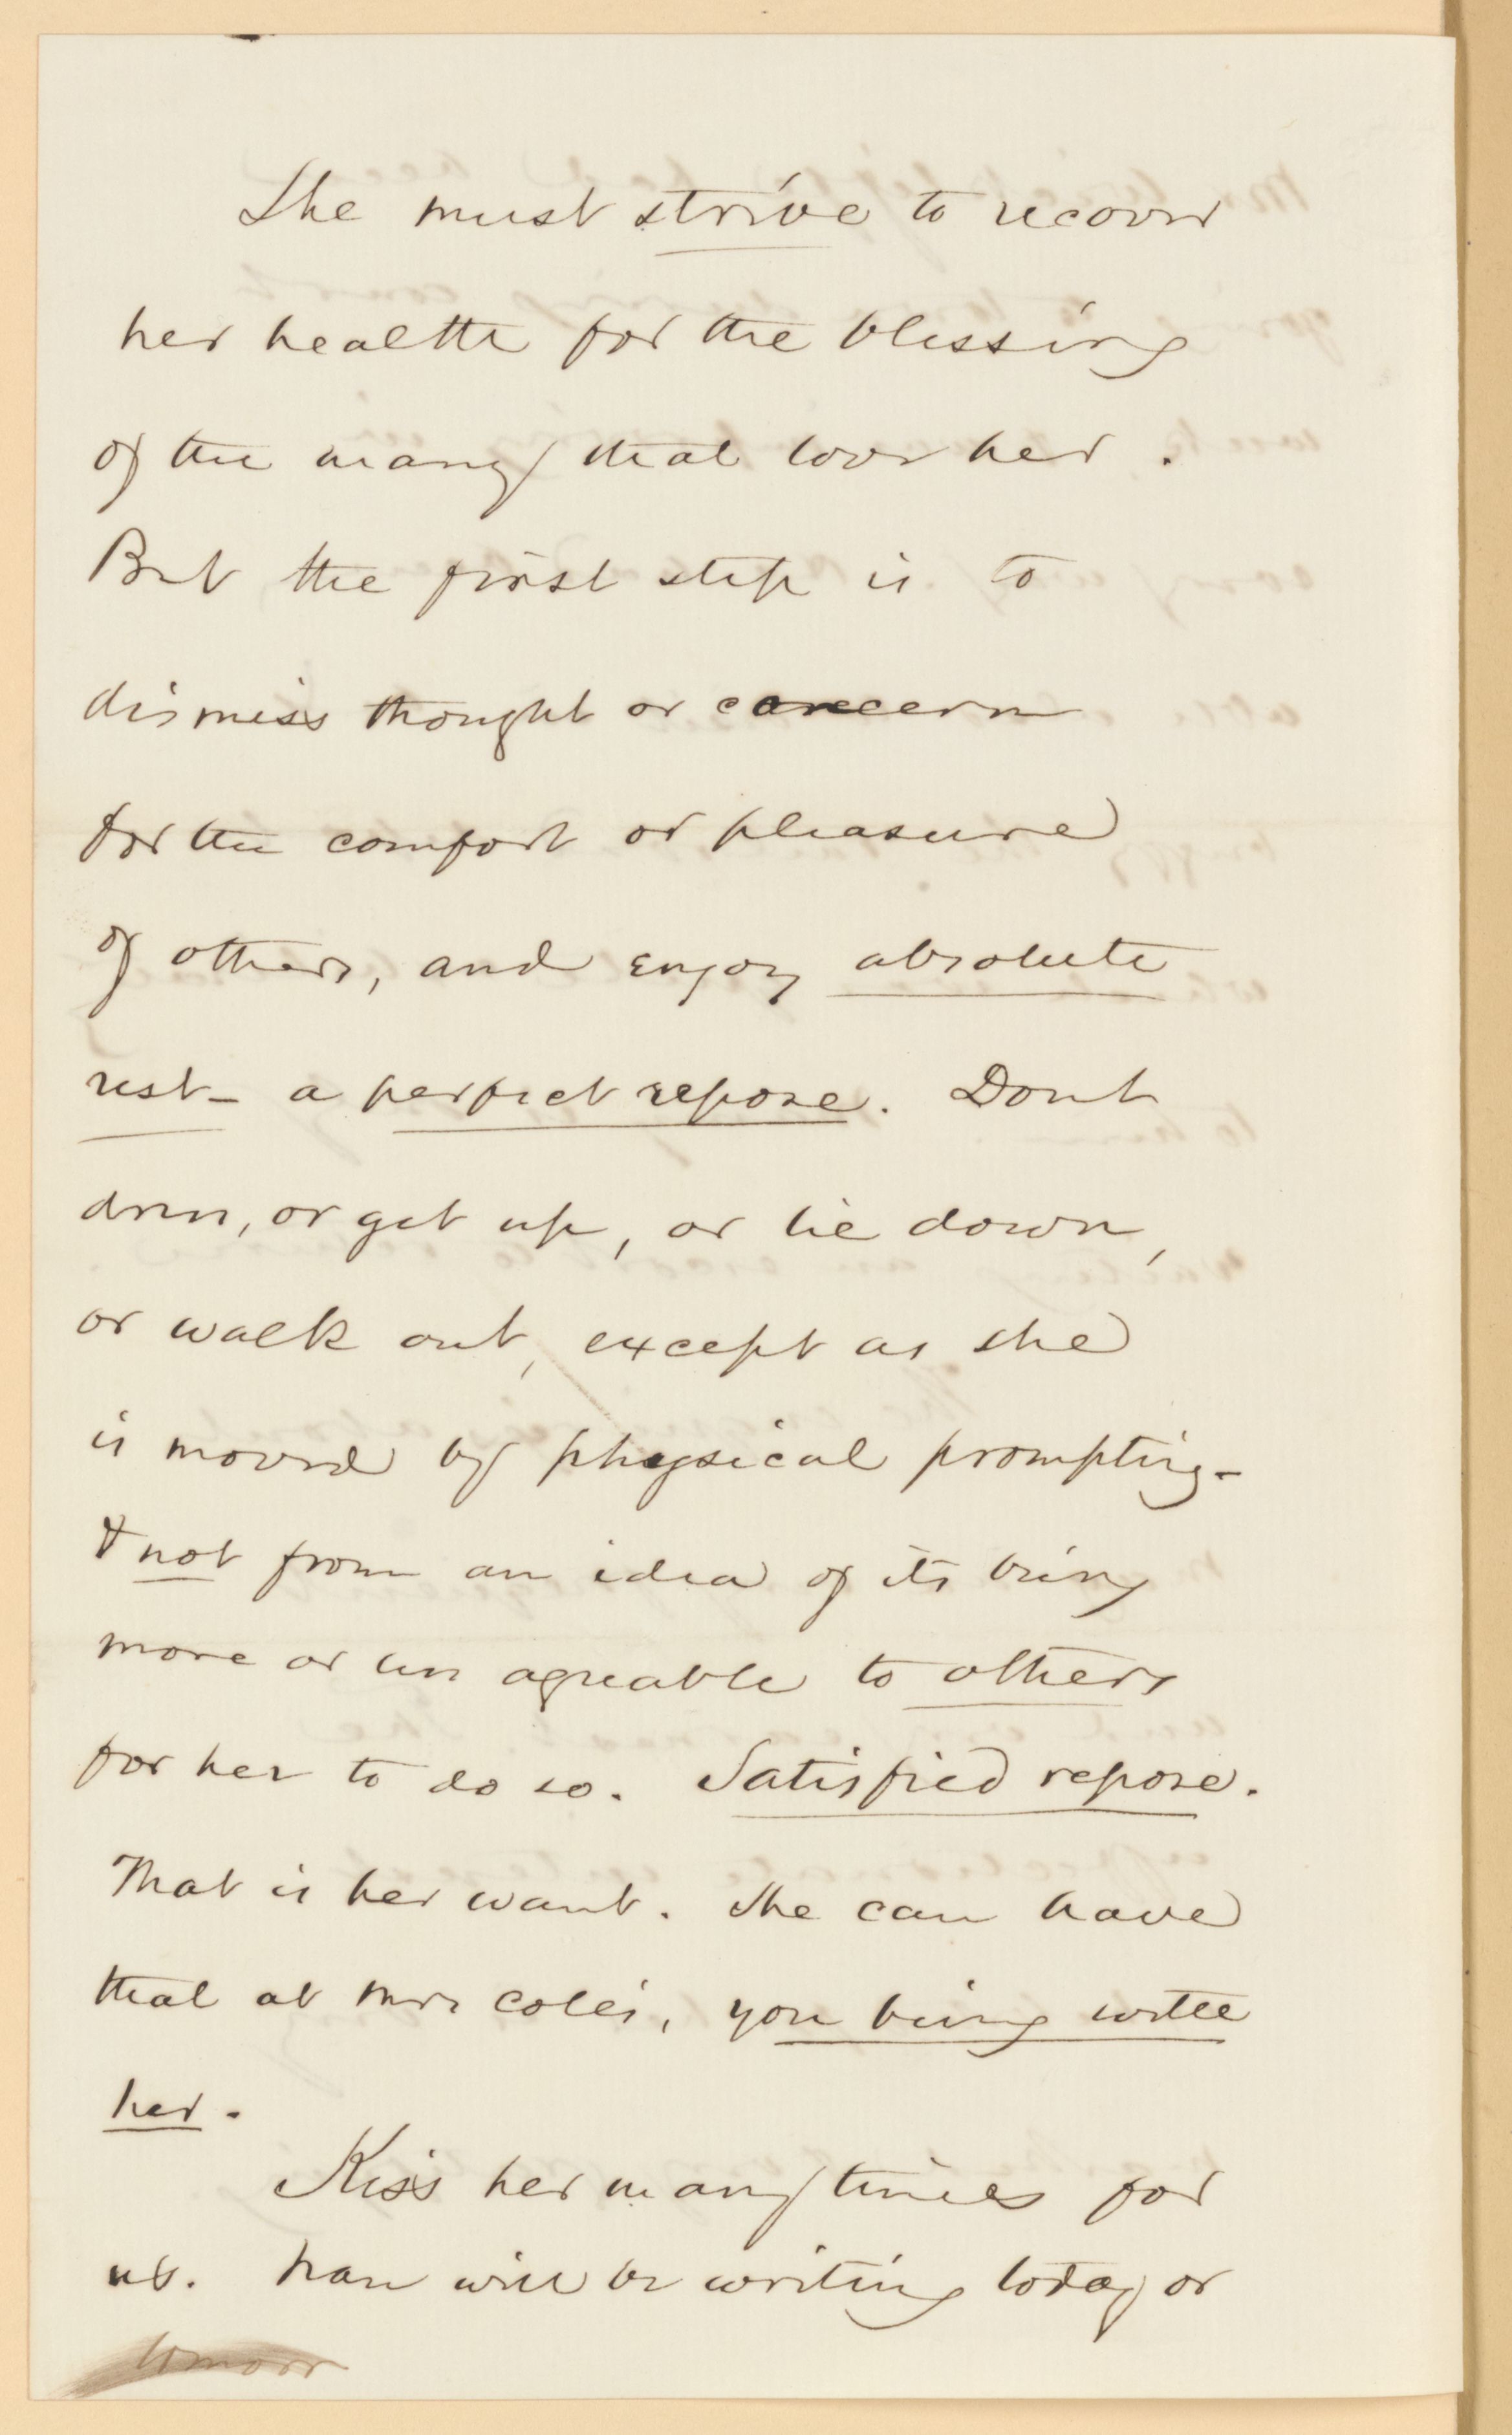 She must strive to recover
her health for the blessing
of the many that love her.
But the first step is to
dismiss thought or concern
for the comfort or pleasure
of others, and enjoy absolute
rest - a perfect repose. Dont
dress, or get up, or lie down,
or walk out, except as she
is moved by physical prompting -
& not from an idea of its being
more or less agreable to others
for her to do so. Satisfied repose.
That is her want. She can have
that at Mrs Coles, you being with
her.
Kiss her many times for
us. Nan will be writing today or
tomorr